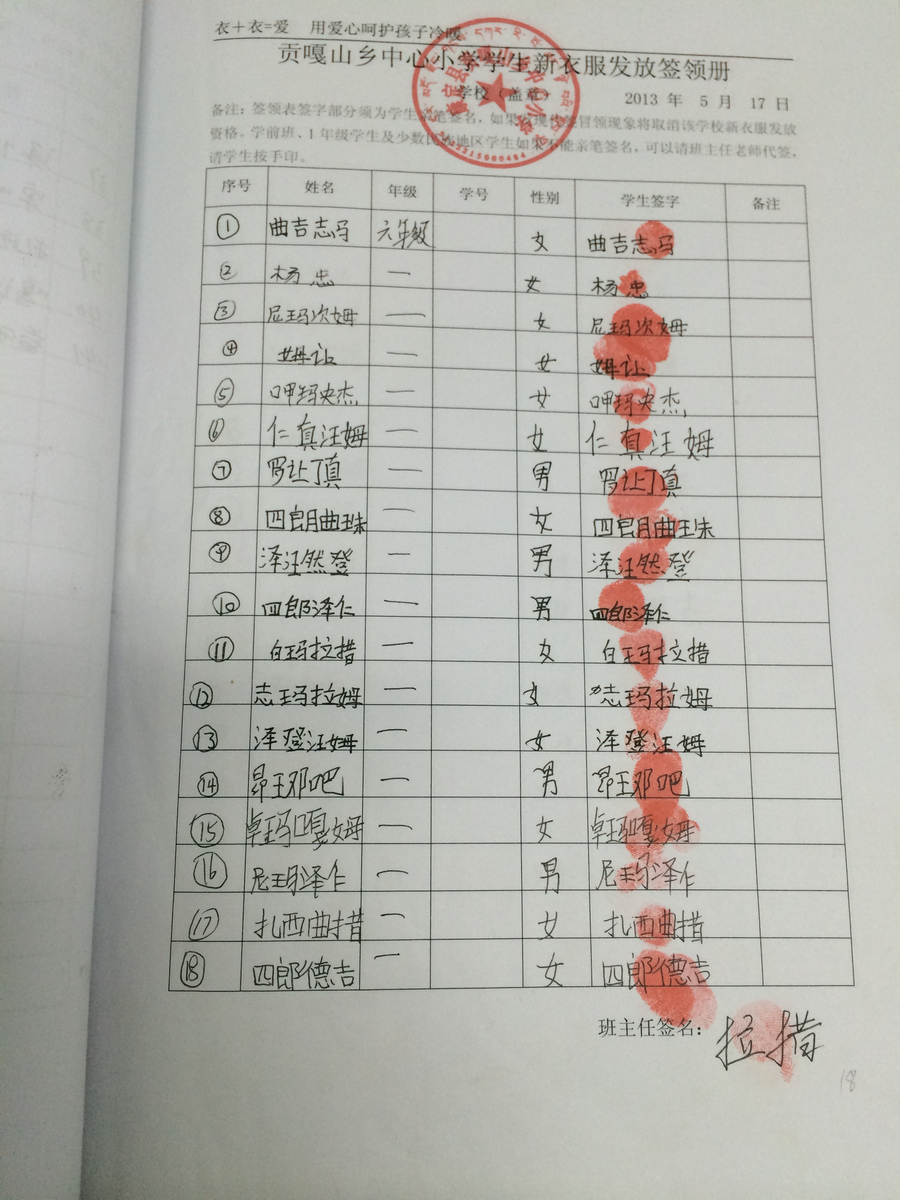 衣+衣=爱 用爱心呵护孩子冷暖
贡嘎山乡中心小学学生新衣服发放签领册
学校(盖章) 2013 年 5 月 17 日
备注:签领表签字部分须为学生亲笔签名,如果发现代签冒领现象将取消该学校新衣服发放
资格。学前班、1年级学生及少数民族地区学生如果不能亲笔签名,可以请班主任老师代签,
请学生按手印。
序号 姓名 年级 学号 性别 学生签字 备注
① 曲吉志玛 六年级 女 曲吉志玛
② 杨忠 一 女 杨忠
③ 尼玛次姆 一 女 尼玛次姆
④ 姆让 一 女 姆让
⑤ 呷玛央杰 一 女 呷玛央杰
⑥ 仁真汪姆 一 女 仁真汪姆
⑦ 罗让丁真 一 男 罗让丁真
⑧ 四郎曲珠 一 女 四郎曲珠
⑨ 泽汪然登 一 男 泽汪然登
⑩ 四郎泽仁 一 男 四郎泽仁
⑪ 白玛拉措 一 女 白玛拉措
⑫ 志玛拉姆 一 女 志玛拉姆
⑬ 泽登汪姆 一 女 泽登汪姆
⑭ 昂王邓吧 一 男 昂王邓吧
⑮ 卓玛嘎姆 一 女 卓玛嘎姆
⑯ 尼玛泽仁 一 男 尼玛泽仁
⑰ 扎西曲措 一 女 扎西曲措
⑱ 四郎德吉 一 女 四郎德吉
班主任签名: 拉措
18